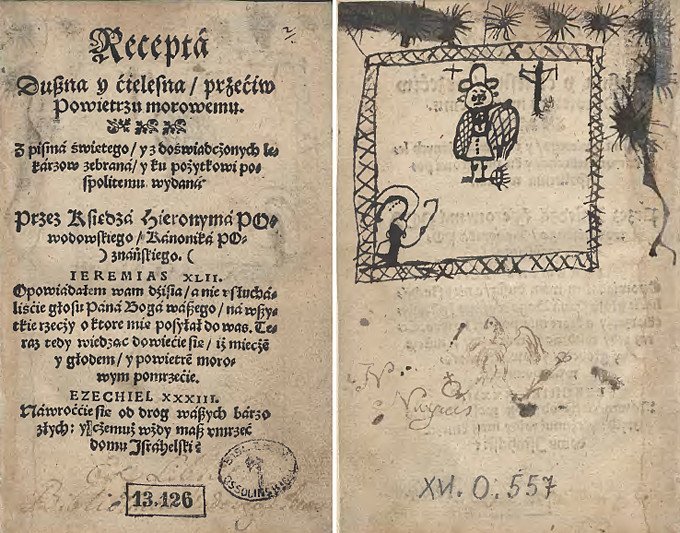 Receptá
Dußna y ćielesna / przećiw
Powietrzu morowemu.
Z pisma świetego / y z doświadczonych le-
karzow zebrana / y ku pożytkowi po-
spolitemu wydaná
Przez Ksiedzá Hieronymá PO-
wodowskiego / Kánoniká PO-
) znáńskiego. (
IEREMIAS XLII.
Opowiádałem wam dźiśia / á nie vsłuchá-
liśćie głosu Páná Bogá wáßego / ná wßy-
tkie rzeczy o ktore mie posyłał do was. Te-
raz tedy wiedząc dowiećie sie / iż mieczē
y głodem / y powietrē moro-
wym pomrzećie.
EZECHIEL XXXIII.
Náwroććie sie od drog wáßych bárzo
złych: y czemuż wżdy maß vmrzeć
domu Izráhelski
13.126
2
XVI. O. 557